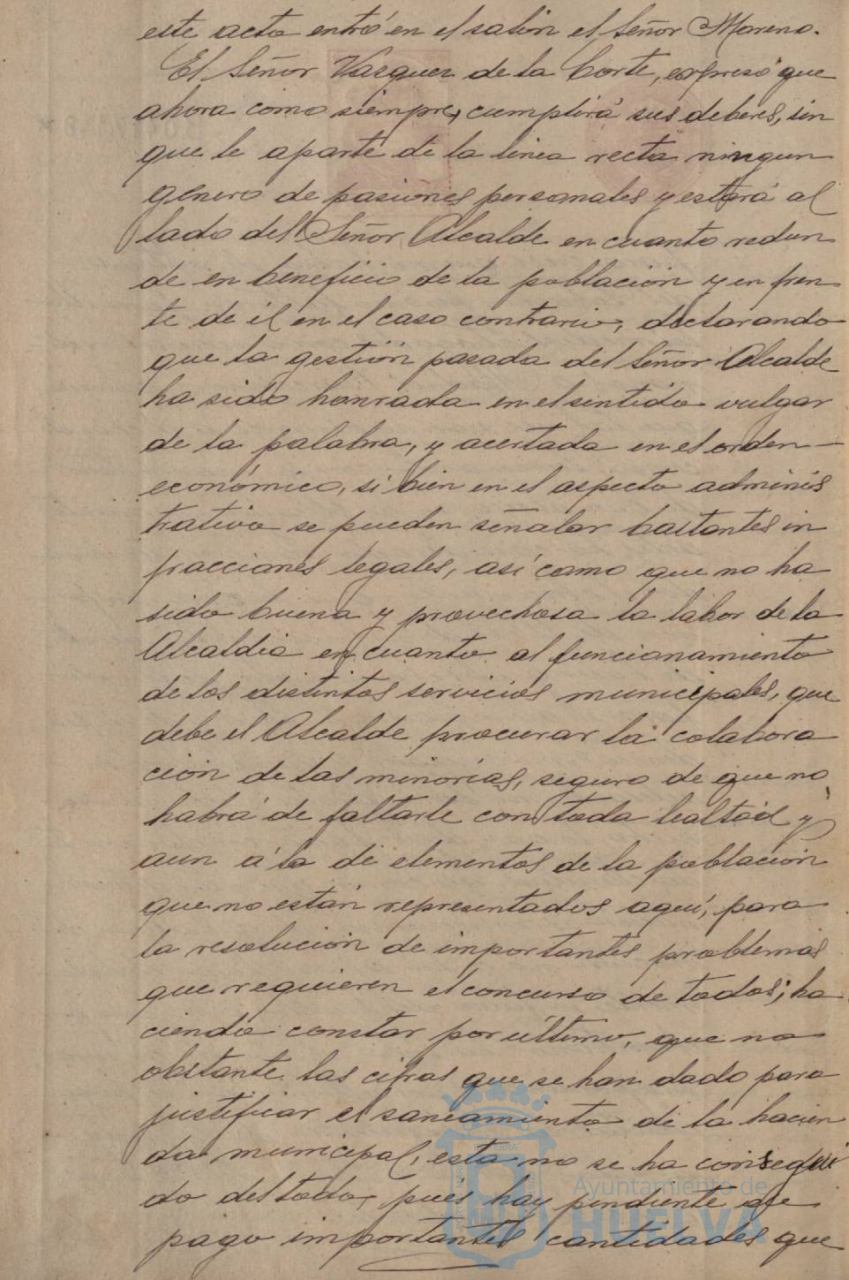 este acto entró en el salón el Señor Moreno.
El Señor Vazquez de la Corte, expresó que
ahora como siempre, cumplirá sus deberes, sin
que le aparte de la linea recta ningun
genero de pasiones personales y estará al
lado del Señor Alcalde en cuanto redun
de en beneficio de la población y en fren
te de él en el caso contrario, declarando
que la gestión pasada del Señor Alcalde
ha sido honrada en el sentido vulgar
de la palabra, y acertada en el orden
económico, si bien en el aspecto adminis
trativo se pueden señalar bastantes in
fracciones legales, así como que no ha
sido buena y provechosa la labor de la
Alcaldia en cuanto al funcionamiento
de los distintos servicios municipales, que
debe el Alcalde procurar la colabora
ción de las minorías, seguro de que no
habrá de faltarle con toda lealtad y
aun á la de elementos de la población
que no están representados aquí, para
la resolución de importantes problemas
que requieren el concurso de todos; ha
ciendo constar por último, que no
obstante las cifras que se han dado para
justificar el saneamiento de la hacien
da municipal, esta no se ha consegui
do del todo, pues hay pendente de
pago importantes cantidades que
Ayuntamiento de
HUELVA